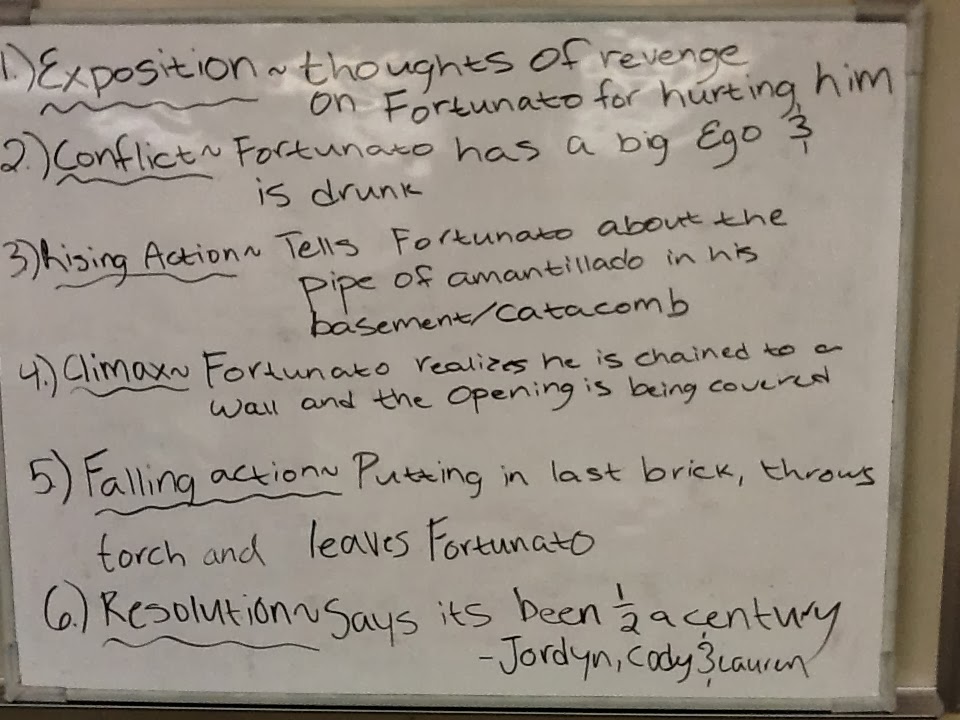 1.) Exposition ~ thoughts of revenge
on Fortunato for hurting him
2.) Conflict ~ Fortunato has a big Ego &
is drunk
3) Rising Action ~ Tells Fortunato about the
pipe of amantillado in his
basement/catacomb
4.) Climax ~ Fortunato realizes he is chained to a
wall and the opening is being covered
5) Falling action ~ Putting in last brick, throws
torch and leaves Fortunato
6.) Resolution ~ Says its been 1/2 a century
- Jordyn, Cody & Lauren